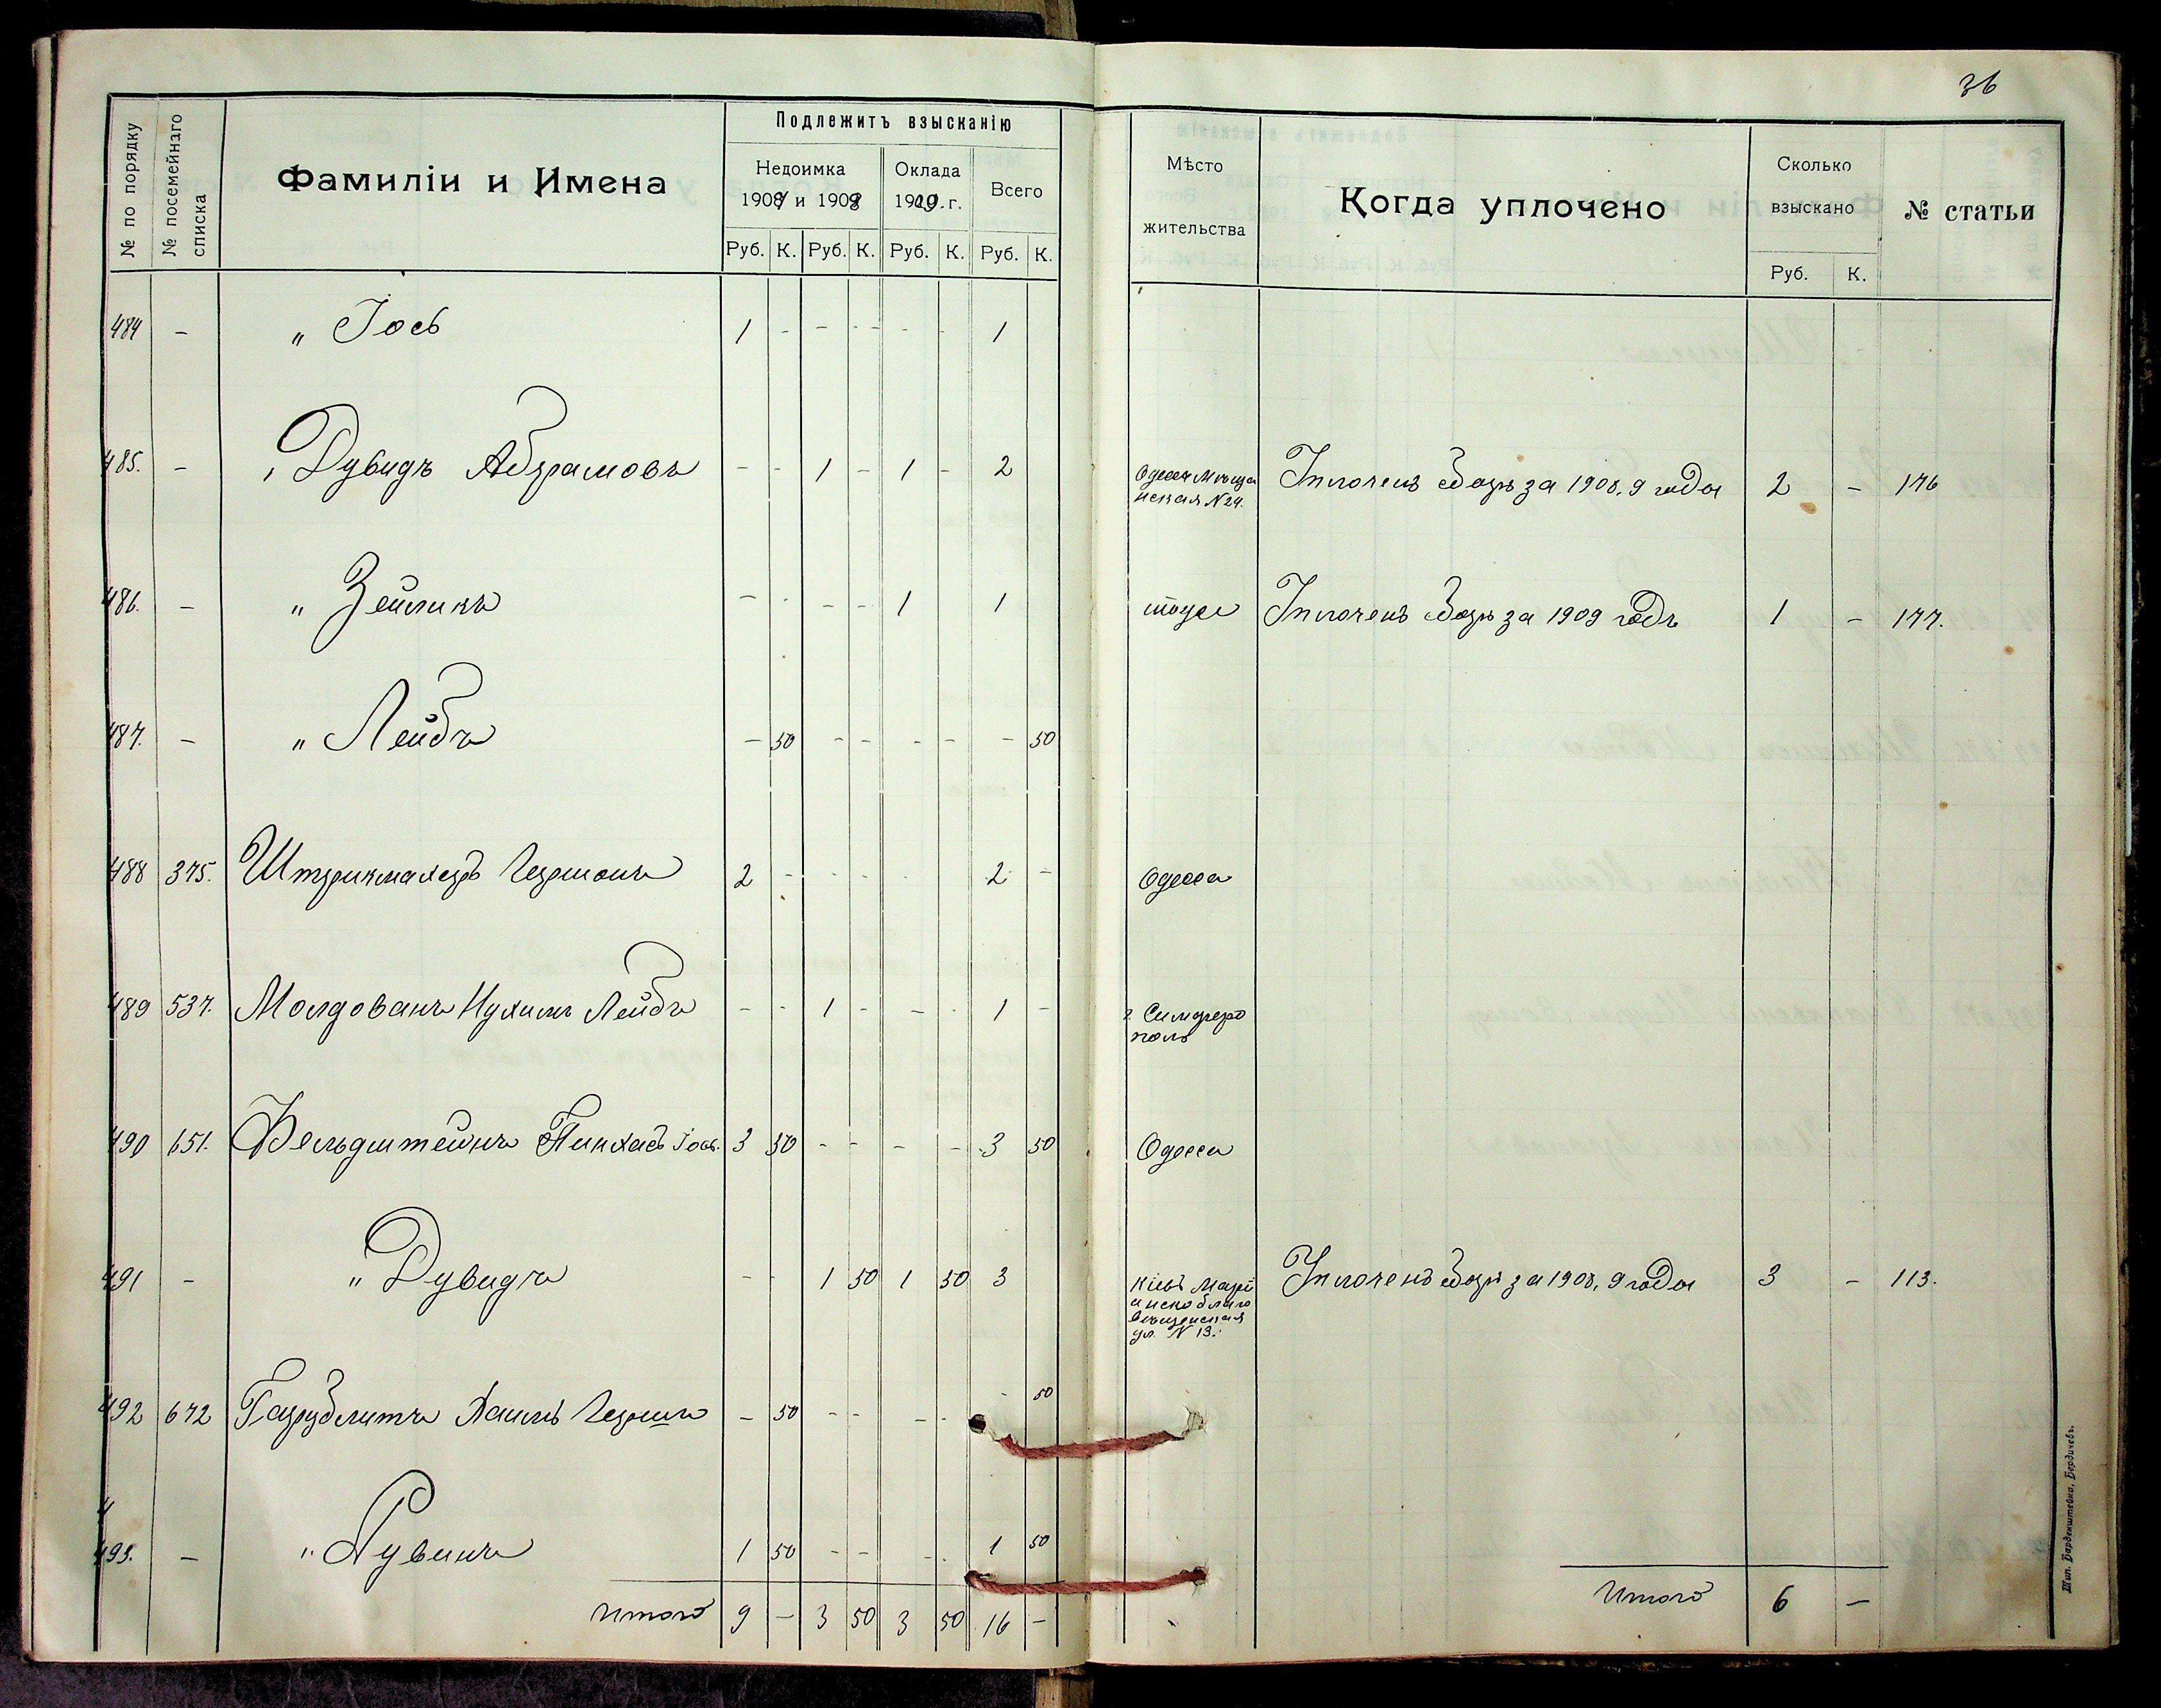 36
№ по порядку
№ посемейнаго списка
Фамиліи и Имена
Подлежитъ взысканію
Недоимка
1907 и 1908
Оклада
1909 г.
Всего
Руб. К. Руб. К. Руб. К. Руб. К.
Мѣсто
жительства
Когда уплочено
Сколько
взыскано
Руб. К.
№ статьи
484 – „ Іось 1 - - - - - 1
485. – „ Дувидъ Абрамовъ - - 1 - 1 - 2 Одесса Мѣща
нская N 24. Уплоченъ сборъ за 1908, 9 года 2 – 176
486. – „ Зейликъ - - - - 1 1 тоже Уплоченъ сборъ за 1909 годъ 1 – 177.
487. – „ Лейбъ – 50 - - - - – 50
488 375. Штрикмахеръ Гершонъ 2 - - - - 2 – Одесса
489 537. Молдованъ Нухимъ Лейбъ - - 1 - - - 1 – г. Симферо
поль
490 651. Фельдштейнъ Пинхасъ Іос. 3 50 - - - - 3 50 Одесса
491 – „ Дувидъ - - 1 50 1 50 3 Кіевъ Марі
инско благо
вѣщенская
ул. N 13. Уплоченъ сборъ за 1908, 9 года 3 – 113.
492 672 Гарублитъ Хаимъ Гершъ – 50 - - - - - 50
493. – „ Рувинъ 1 50 - - - - 1 50
Итого 9 – 3 50 3 50 16 –
Итого 6 –
Тип. Барденштейна, Бердичевъ.